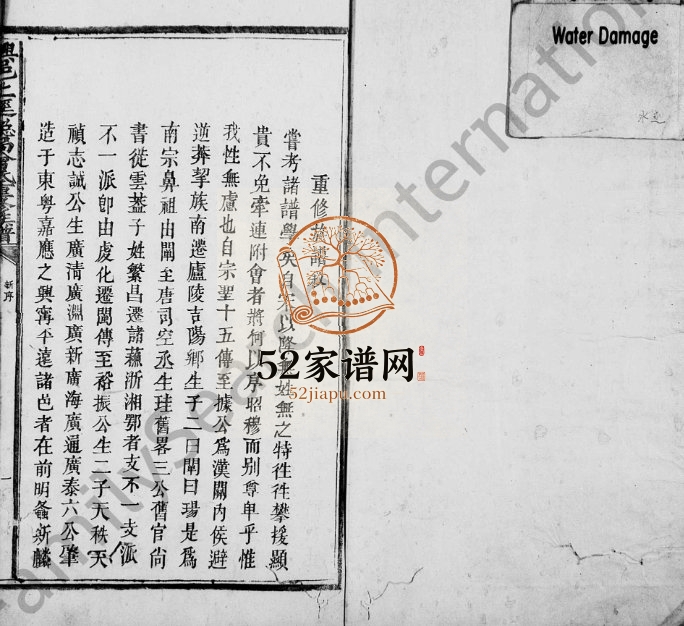 Water Damage
水迹
重修族譜敘
嘗考諸譜學失自宋以隆 姓無之特徃徃攀援顯
貴不免牽連附會者將何以序昭穆而别尊卑乎惟
我姓無慮也自宗聖十五傳至據公爲漢關内侯避
逆莽挈族南遷廬陵吉陽鄉生子二曰闡曰瑒是爲
南宗鼻祖由闡至唐司空丞生珪舊畧三公舊官尙
書徙雲葢子姓繁昌遷諸蘓浙湘鄂者支不一支派
不一派卽由虔化遷閩傳至裕振公生二子天秩天
禎志誠公生廣淸廣淵廣新廣海廣通廣泰六公肇
造于東粤嘉應之興寕平遠諸邑者在前明螽斯麟
新序
52家谱网
52jiapu.com
FamilySearch International